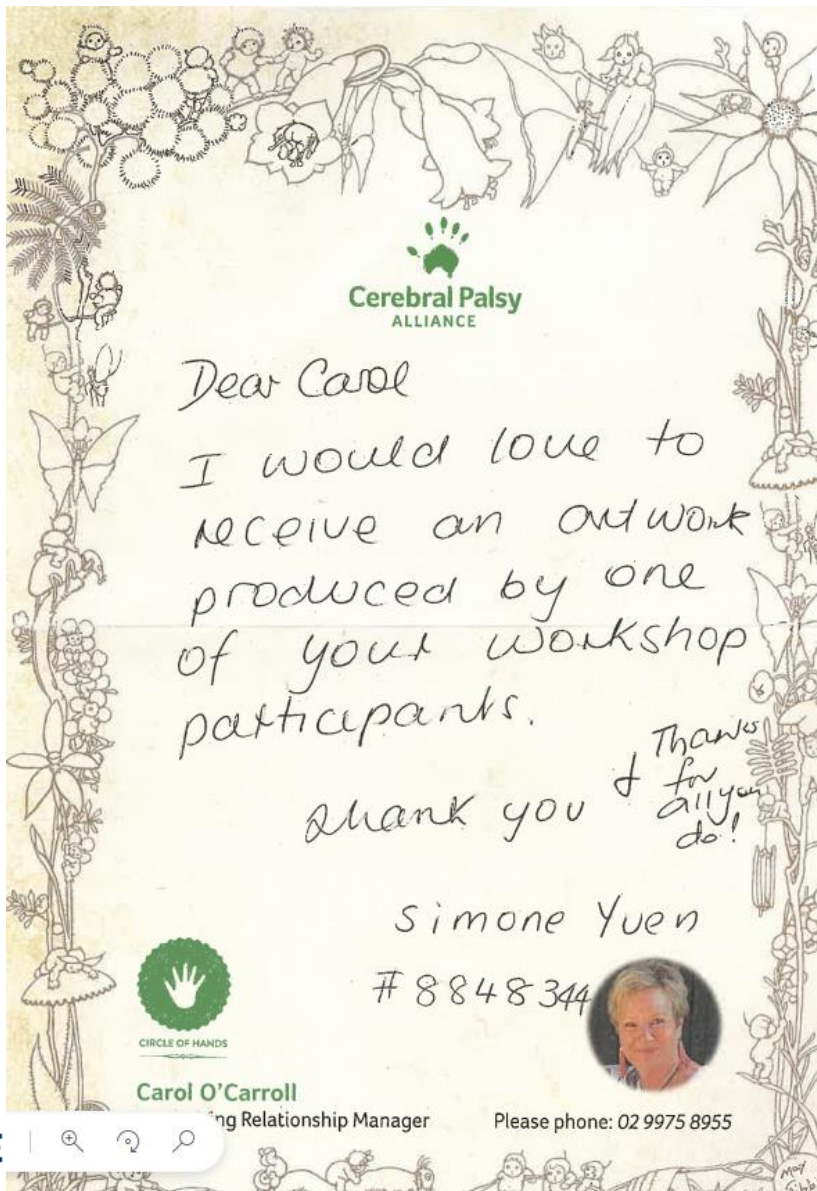 Cerebral Palsy
ALLIANCE
Dear Carol
I would love to
receive an artwork
produced by one
of your workshop
participants.
thank you & Thanks
for
all you
do!
Simone Yuen
#8848344
CIRCLE OF HANDS
Carol O'Carroll
ng Relationship Manager
Please phone: 02 9975 8955
May